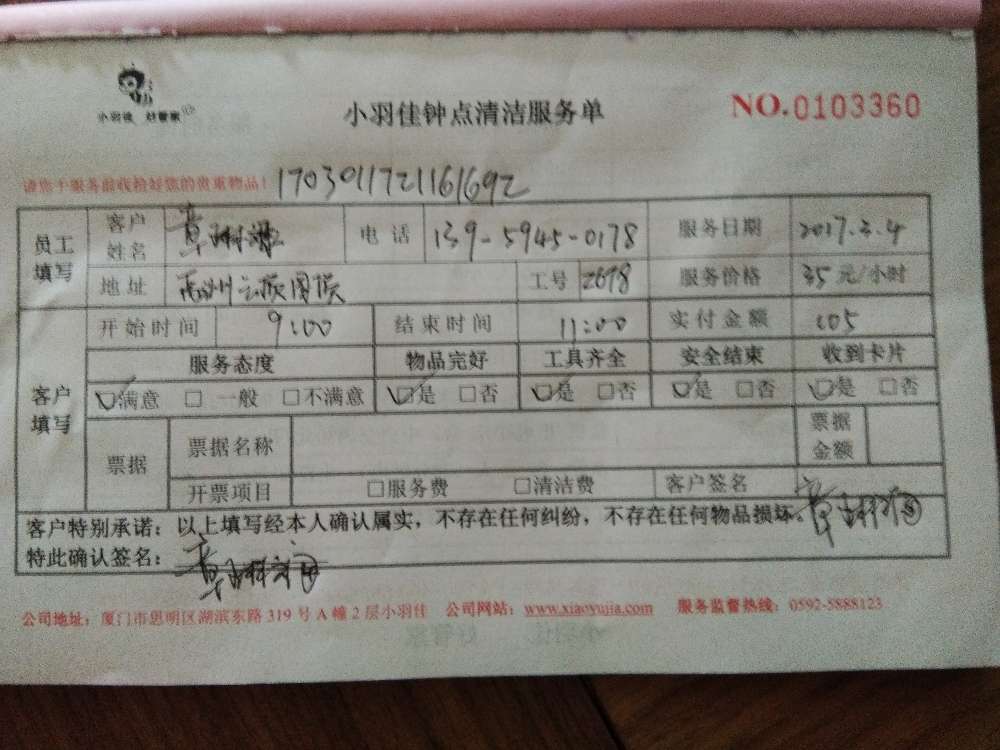 小羽佳 好管家
小羽佳钟点清洁服务单
NO.0103360
请您于服务前收捡好您的贵重物品！ 1703011721161692
员工填写 客户姓名 章 电话 139-5945-0178 服务日期 2017.3.4
地址 工号 2678 服务价格 35元/小时
客户填写 开始时间 9:00 结束时间 11:00 实付金额 105
服务态度 物品完好 工具齐全 安全结束 收到卡片
☑满意 □一般 □不满意 ☑是 □否 ☑是 □否 ☑是 □否 ☑是 □否
票据 票据名称 票据金额
开票项目 □服务费 □清洁费 客户签名 章
客户特别承诺：以上填写经本人确认属实，不存在任何纠纷，不存在任何物品损坏。
特此确认签名： 章
公司地址：厦门市思明区湖滨东路 319 号 A 幢 2 层小羽佳 公司网站：www.xiaoyujia.com 服务监督热线：0592-5888123